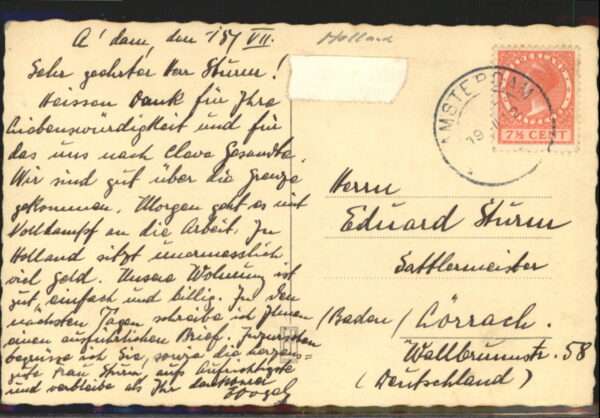 A'dam, den 18/VII.
Sehr geehrter Herr Sturm!
Heissen Dank für Ihre
Liebenswürdigkeit und für
das uns nach Cleve Gesandte.
Wir sind gut über die Grenze
gekommen. Morgen geht es mit
Volldampf an die Arbeit. In
Holland sitzt unermesslich
viel Geld. Unsere Wohnung ist
gut, einfach und billig. In den
nächsten Tagen schreibe ich Ihnen
einen ausführlichen Brief. Inzwischen
begrüsse ich Sie, sowie die herzens-
gute Frau Sturm, aufs Aufrichtigste
und verbleibe als Ihr dankbarer
Vogel
Holland
AMSTERDAM
19
7½ CENT
Herrn
Eduard Sturm
Sattlermeister
(Baden) Lörrach.
Wallbrunnstr. 58
(Deutschland)